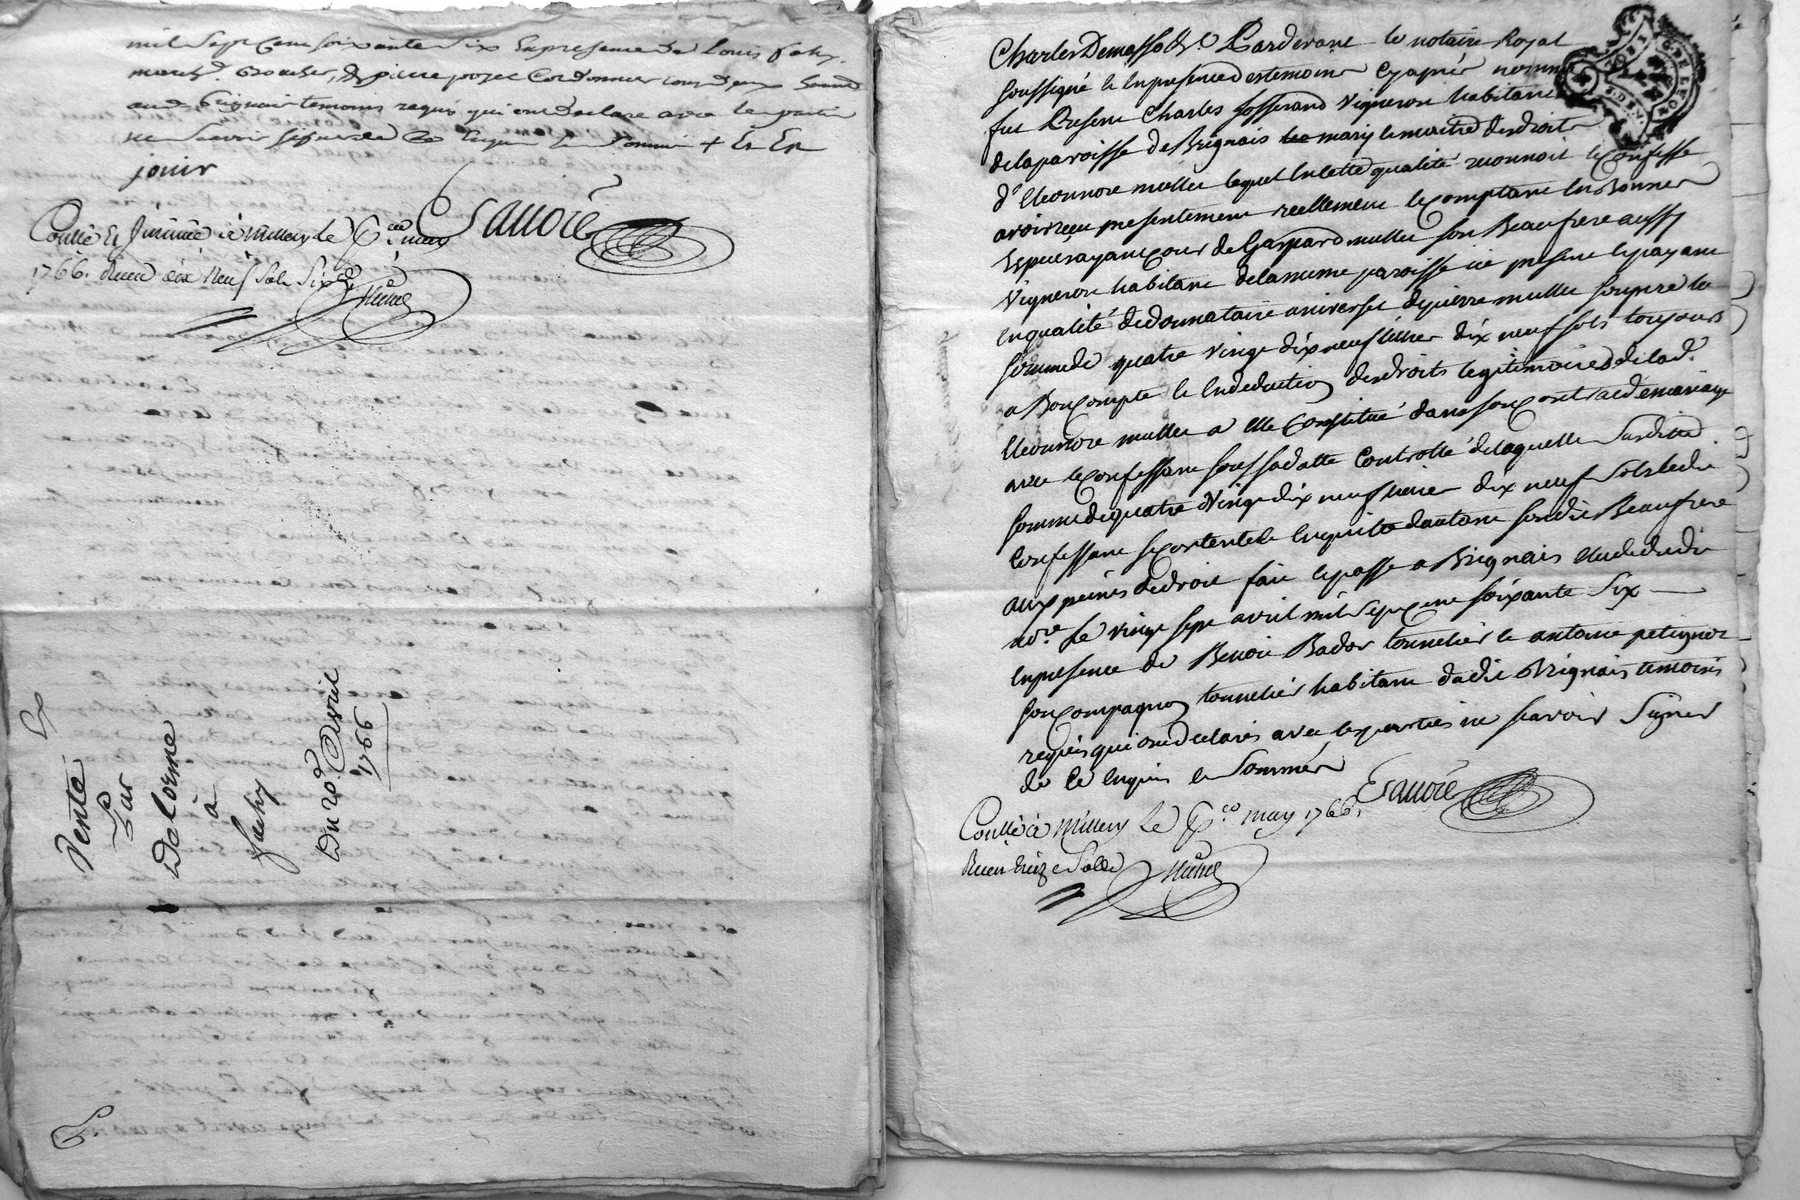 mil sept cent soixante six En presence de Louis fahy
march.d Boucher, & pierre projet Cordonnier tous deux
aud. Brignais temoins requis qui ont declare avec les parties
ne Savoir signer de ce Enquis Et Sommé + Et En
jouir
Esauoié
Con.llé Et Jnsinué à Millery le 6.me may
1766. Receu dix Neuf Sols Six d.
Vente
Par
Delorme
à
fahy
Du 20.e Avril
1766
Charles Demasso &c. Pardevant le notaire Royal
soussigné & En presence des temoins cy apres nommes
fut Present Charles Jofserand Vigneron habitant
de la paroisse de Brignais mary & maitre des droits
d'Eleonnore muller lequel En cette qualité reconnoit & Confesse
avoir receu presentement reellement & comptant En Bonnes
Especes ayant cour de Gaspard muller son Beaufrere aussy
Vigneron habitant de la meme paroisse icy present & payant
En qualité de donnataire universel de pierre muller son pere la
somme de quatre vingt dix neuf livres dix neuf sols toujours
a Bon Compte & En deduction des droits legitimaires de lad.e
Eleonnore muller a elle Constitué dans son Contract de mariage
avec le Confessant sous sa datte Controllé de laquelle Susditte
somme de quatre Vingt dix neuf livres dix neuf Sols ledit
Confessant se contente & En quitte dautant sondit Beaufrere
aux peines de droit fait & passe a Brignais Etude dudit
no.re le vingt sept avril mil sept cent soixante six
En presence de Benoit Bador tonnelier & antoine petignot
son Compagnon tonnelier habitant dudit Brignais temoins
requis qui ont declarés avec les parties ne scavoir Signer
de ce Enquis & Sommés
Esauoié
Con.llé à Millery Le 6.e may 1766.
Receu treize Sols